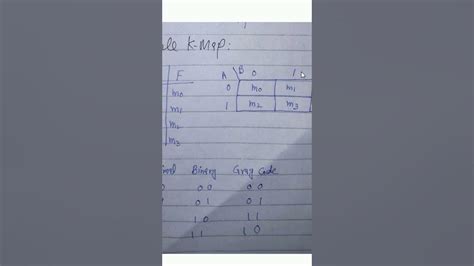 K-Map:
F A B 0 1
m0 0 m0 m1
m1 1 m2 m3
m2
m3
Binary Gray Code
0 0 0 0
0 1 0 1
1 0 1 1
1 1 1 0